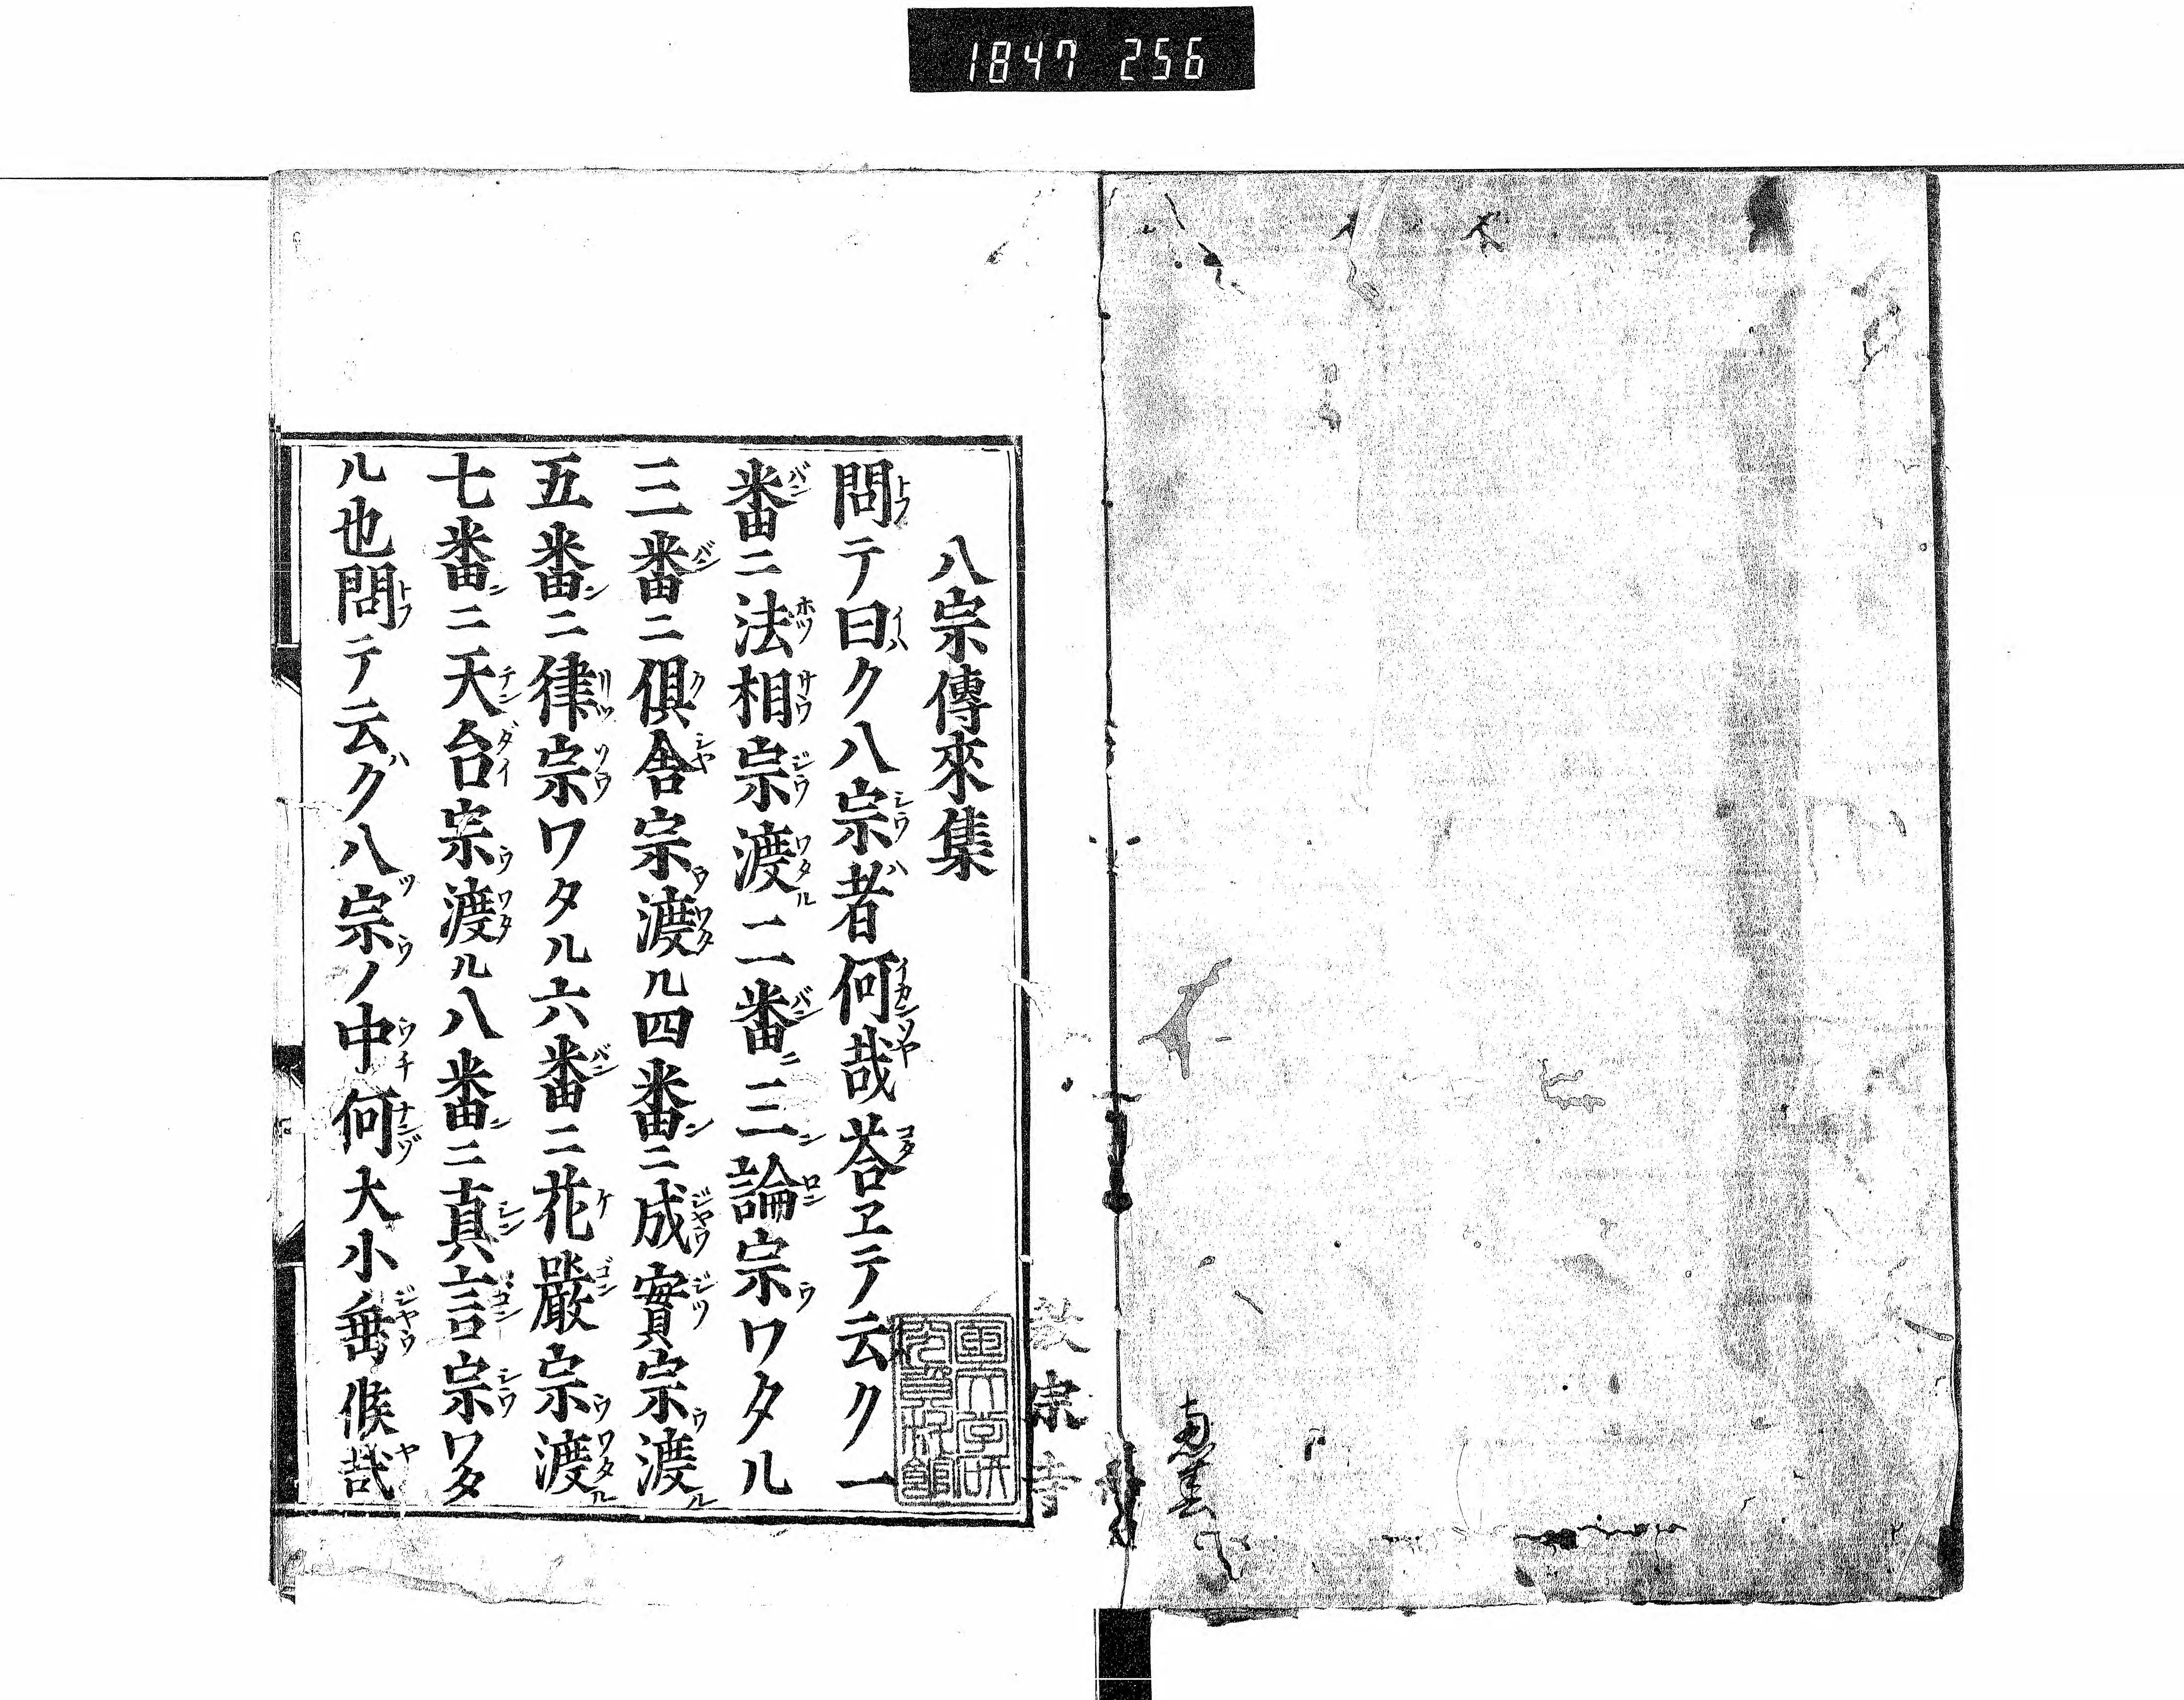 1847 256
八宗傳來集
問テ曰ク八宗者何哉荅ヱテ云ク一
番ニ法相宗渡二番三論宗ワタル
三番ニ俱舎宗渡ル四番ニ成實宗渡
五番ニ律宗ワタル六番ニ花嚴宗渡
七番ニ天台宗渡ル八番ニ真言宗ワタ
ル也問テ云ク八宗ノ中何大小乗候哉
宗寺